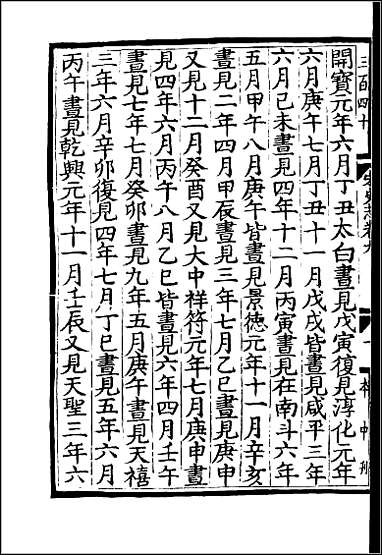 開寶元年六月丁丑太白晝見戊寅復見淳化元年
六月庚午七月丁丑十一月戊戌皆晝見咸平三年
六月己未晝見四年十二月丙寅晝見在南斗六年
五月甲午八月庚午皆晝見景德元年十一月辛亥
晝見二年四月甲辰晝見三年七月乙巳晝見庚申
又見十二月癸酉又見大中祥符元年七月庚申晝
見四年六月丙午八月乙巳皆晝見六年四月壬午
晝見七年七月癸卯晝見九年五月庚午晝見天禧
三年六月辛卯復見四年七月丁巳晝見五年六月
丙午晝見乾興元年十一月壬辰又見天聖三年六